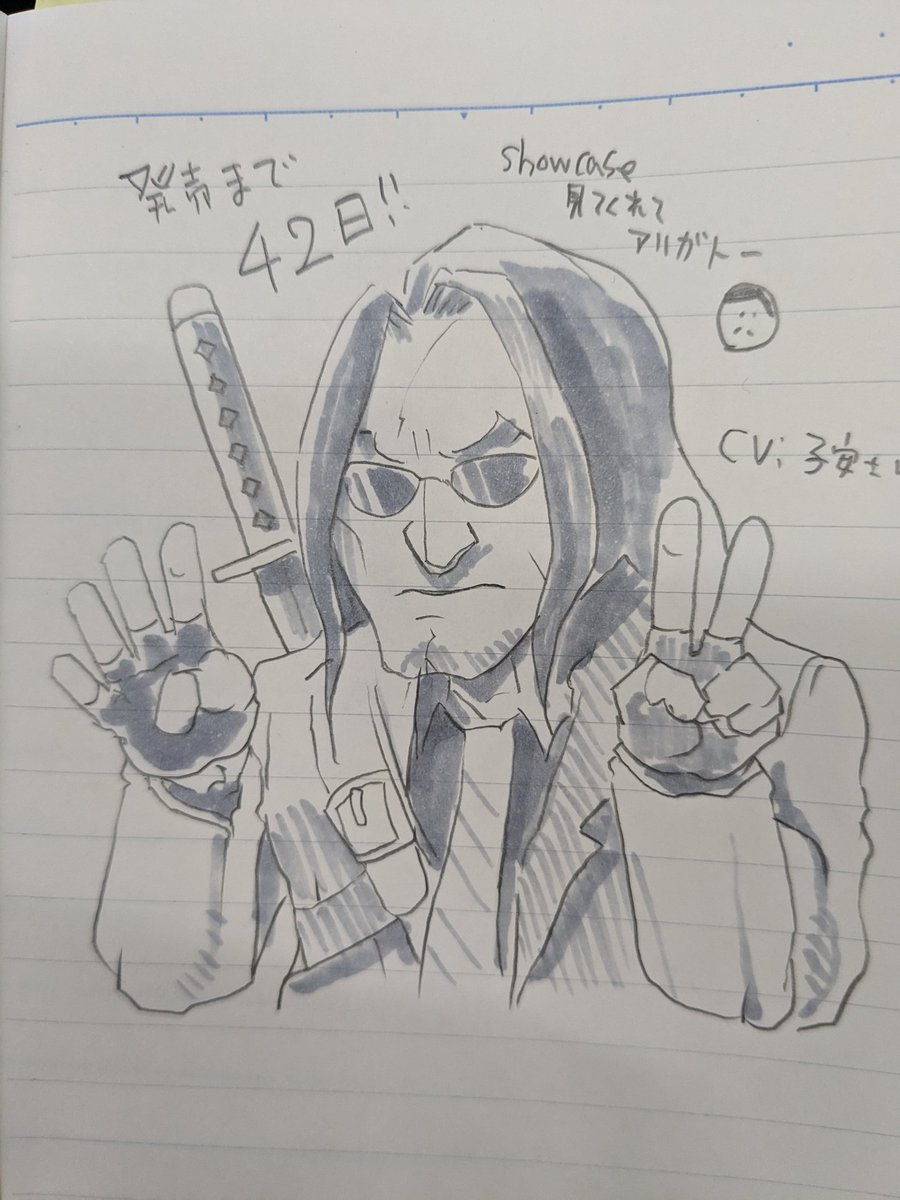 発売まで
42日!!
showcase
見てくれて
アリガトー
CV: 子安さ